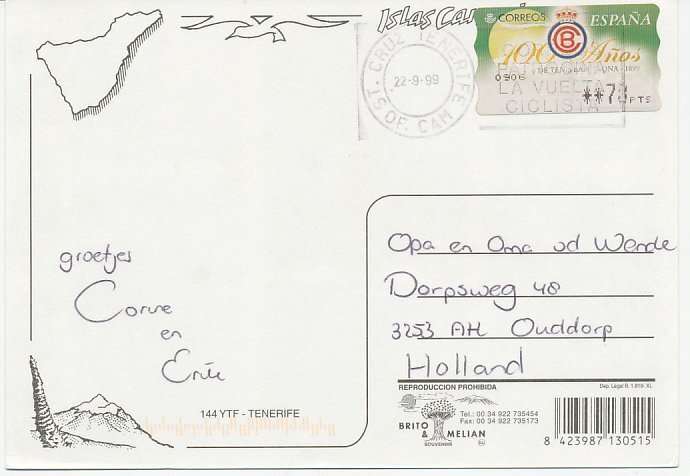 Islas Can
CORREOS ESPAÑA
100 Años
DE TENIS BARCELONA - 1899
0906
**78 PTS
S. CRUZ TENERIFE
22-9-99
SUC. DE CAM
LA VUELTA
CICLISTA
groetjes
Corine
en
Opa en Oma vd Wende
Dorpsweg 48
3253 AH Ouddorp
Holland
144 YTF - TENERIFE
REPRODUCCION PROHIBIDA
Dep. Legal B. 1.819- XL
BRITO & MELIAN
SOUVENIRS
Tel.: 00 34 922 735454
Fax: 00 34 922 735173
8 423987 130515